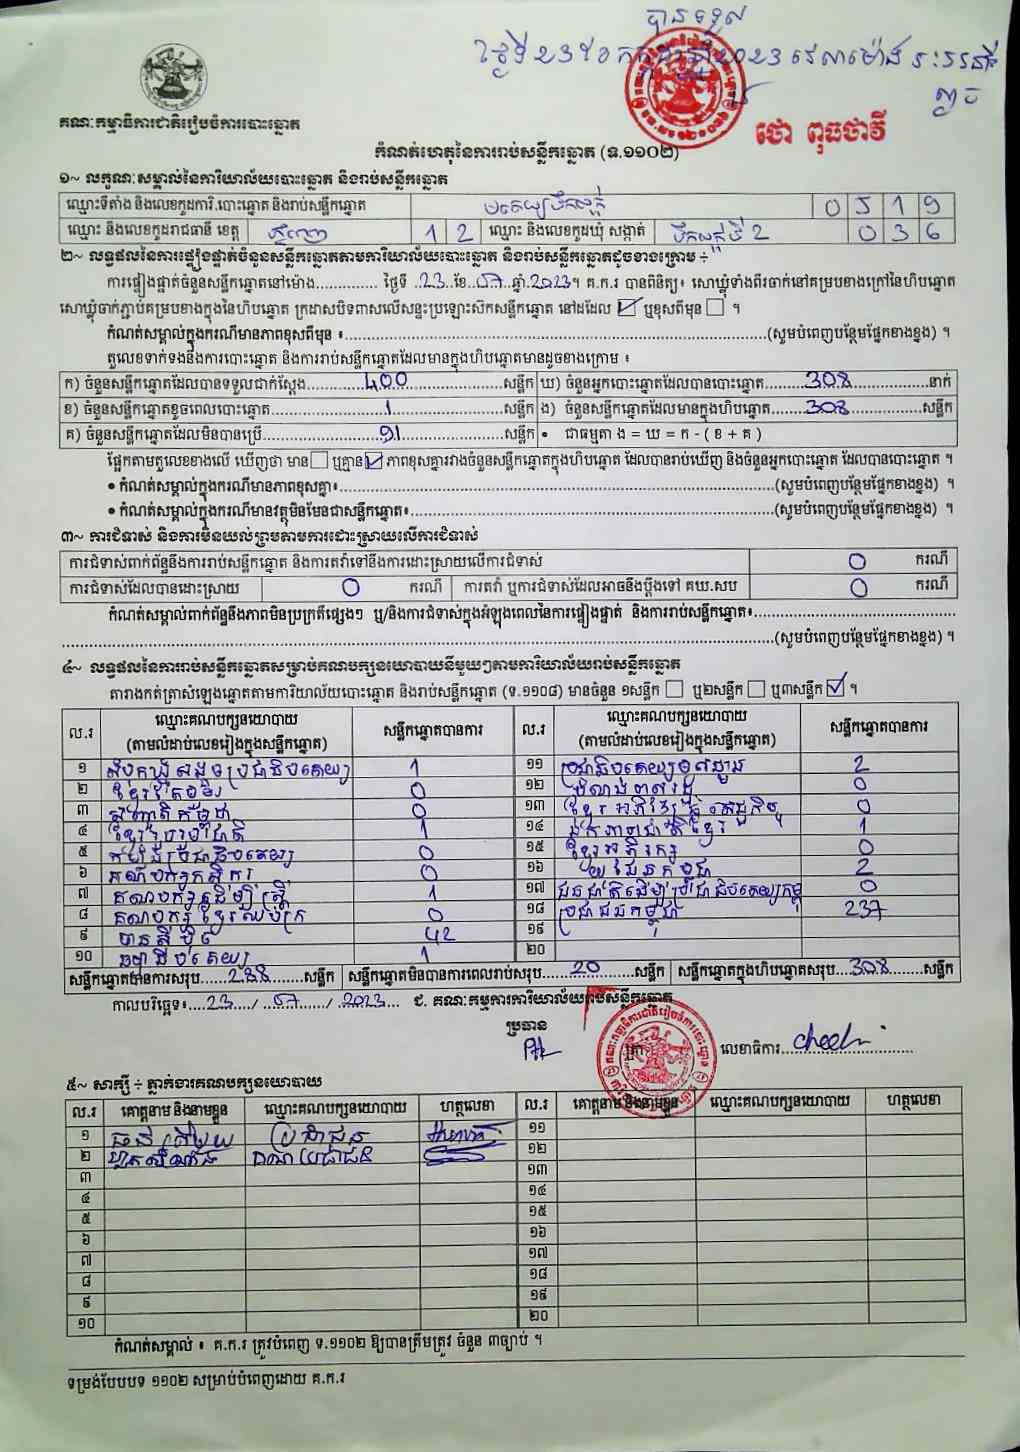 បានទទួល
ថ្ងៃទី 23 ខែ កក្កដា ឆ្នាំ 2023 វេលាម៉ោង
គណៈកម្មាធិការជាតិរៀបចំការបោះឆ្នោត
ថោ ពុធថាវី
កំណត់ហេតុនៃការរាប់សន្លឹកឆ្នោត (ទ.១១០២)
១~ លក្ខណៈសម្គាល់នៃការិយាល័យបោះឆ្នោត និងរាប់សន្លឹកឆ្នោត
ឈ្មោះទីតាំង និងលេខកូដការិ.បោះឆ្នោត និងរាប់សន្លឹកឆ្នោត 0519
ឈ្មោះ និងលេខកូដរាជធានី ខេត្ត ភ្នំពេញ 12 ឈ្មោះ និងលេខកូដឃុំ សង្កាត់ ទឹកល្អក់ទី 2 036
២~ លទ្ធផលនៃការផ្ទៀងផ្ទាត់ចំនួនសន្លឹកឆ្នោតតាមការិយាល័យបោះឆ្នោត និងរាប់សន្លឹកឆ្នោតដូចខាងក្រោម ÷
ការផ្ទៀងផ្ទាត់ចំនួនសន្លឹកឆ្នោតនៅម៉ោង.............. ថ្ងៃទី ..23..ខែ...07...ឆ្នាំ.2023។ គ.ក.រ បានពិនិត្យ៖ សោឃ្លុំទាំងពីរចាក់នៅគម្របខាងក្រៅនៃហិបឆ្នោត
សោឃ្លុំចាក់ភ្ជាប់គម្របខាងក្នុងនៃហិបឆ្នោត ក្រដាសបិទពាសលើសន្ទះប្រឡោះស៊កសន្លឹកឆ្នោត នៅដដែល ☑ ឬខុសពីមុន ☐ ។
កំណត់សម្គាល់ក្នុងករណីមានភាពខុសពីមុន ៖..........(សូមបំពេញបន្ថែមផ្នែកខាងខ្នង) ។
តួលេខទាក់ទងនឹងការបោះឆ្នោត និងការរាប់សន្លឹកឆ្នោតដែលមានក្នុងហិបឆ្នោតមានដូចខាងក្រោម ៖
ក) ចំនួនសន្លឹកឆ្នោតដែលបានទទួលជាក់ស្តែង..........400..........សន្លឹក ឃ) ចំនួនអ្នកបោះឆ្នោតដែលបានបោះឆ្នោត..........308..........នាក់
ខ) ចំនួនសន្លឹកឆ្នោតខូចពេលបោះឆ្នោត..........1..........សន្លឹក ង) ចំនួនសន្លឹកឆ្នោតដែលមានក្នុងហិបឆ្នោត..........308..........សន្លឹក
គ) ចំនួនសន្លឹកឆ្នោតដែលមិនបានប្រើ..........91..........សន្លឹក • ជាធម្មតា ង = ឃ = ក - ( ខ + គ )
ផ្អែកតាមតួលេខខាងលើ ឃើញថា មាន ☐ ឬគ្មាន ☑ ភាពខុសគ្នារវាងចំនួនសន្លឹកឆ្នោតក្នុងហិបឆ្នោត ដែលបានរាប់ឃើញ និងចំនួនអ្នកបោះឆ្នោត ដែលបានបោះឆ្នោត ។
• កំណត់សម្គាល់ក្នុងករណីមានភាពខុសគ្នា៖..........(សូមបំពេញបន្ថែមផ្នែកខាងខ្នង) ។
• កំណត់សម្គាល់ក្នុងករណីមានវត្ថុមិនមែនជាសន្លឹកឆ្នោត៖..........(សូមបំពេញបន្ថែមផ្នែកខាងខ្នង) ។
៣~ ការជំទាស់ និងការមិនយល់ព្រមតាមការដោះស្រាយលើការជំទាស់
ការជំទាស់ពាក់ព័ន្ធនឹងការរាប់សន្លឹកឆ្នោត និងការតវ៉ាទៅនឹងការដោះស្រាយលើការជំទាស់ 0 ករណី
ការជំទាស់ដែលបានដោះស្រាយ 0 ករណី ការតវ៉ា ឬការជំទាស់ដែលអាចនឹងប្តឹងទៅ គឃ.សប 0 ករណី
កំណត់សម្គាល់ពាក់ព័ន្ធនឹងភាពមិនប្រក្រតីផ្សេងៗ ឬ/និងការជំទាស់ក្នុងអំឡុងពេលនៃការផ្ទៀងផ្ទាត់ និងការរាប់សន្លឹកឆ្នោត៖..........
..........(សូមបំពេញបន្ថែមផ្នែកខាងខ្នង) ។
៤~ លទ្ធផលនៃការរាប់សន្លឹកឆ្នោតសម្រាប់គណបក្សនយោបាយនីមួយៗតាមការិយាល័យរាប់សន្លឹកឆ្នោត
តារាងកត់ត្រាសំឡេងឆ្នោតតាមការិយាល័យបោះឆ្នោត និងរាប់សន្លឹកឆ្នោត (ទ.១១០៨) មានចំនួន ១សន្លឹក ☐ ឬ២សន្លឹក ☐ ឬ៣សន្លឹក ☑ ។
ល.រ ឈ្មោះគណបក្សនយោបាយ (តាមលំដាប់លេខរៀងក្នុងសន្លឹកឆ្នោត) សន្លឹកឆ្នោតបានការ ល.រ ឈ្មោះគណបក្សនយោបាយ (តាមលំដាប់លេខរៀងក្នុងសន្លឹកឆ្នោត) សន្លឹកឆ្នោតបានការ
១ សំបុកឃ្មុំសង្គមប្រជាធិបតេយ្យ 1 ១១ ប្រជាធិបតេយ្យមូលដ្ឋាន 2
២ ខ្មែររួបរួម 0 ១២ 0
៣ សញ្ជាតិកម្ពុជា 0 ១៣ ខ្មែរអភិវឌ្ឍន៍សេដ្ឋកិច្ច 0
៤ ខ្មែររួបរួមជាតិ 1 ១៤ ឯកភាពជាតិខ្មែរ 1
៥ កម្លាំងប្រជាធិបតេយ្យ 0 ១៥ ខ្មែរអភិរក្ស 0
៦ គណបក្សកសិករ 0 ១៦ យុវជនកម្ពុជា 2
៧ គណបក្សដើម្បីស្ត្រី 1 ១៧ ជនជាតិដើមប្រជាធិបតេយ្យកម្ពុជា 0
៨ គណបក្សខ្មែរឈប់ក្រ 0 ១៨ ប្រជាជនកម្ពុជា 237
៩ 42 ១៩
១០ ធម្មាធិបតេយ្យ 1 ២០
សន្លឹកឆ្នោតបានការសរុប......288......សន្លឹក សន្លឹកឆ្នោតមិនបានការពេលរាប់សរុប......20......សន្លឹក សន្លឹកឆ្នោតក្នុងហិបឆ្នោតសរុប...308...សន្លឹក
កាលបរិច្ឆេទ៖....23..../....07..../....2023.... ជ. គណៈកម្មការការិយាល័យរាប់សន្លឹកឆ្នោត
ប្រធាន
ត្រា លេខាធិការ..........
៥~ សាក្សី ÷ ភ្នាក់ងារគណបក្សនយោបាយ
ល.រ គោត្តនាម និងនាមខ្លួន ឈ្មោះគណបក្សនយោបាយ ហត្ថលេខា ល.រ គោត្តនាម និងនាមខ្លួន ឈ្មោះគណបក្សនយោបាយ ហត្ថលេខា
១ ប្រជាជន ១១
២ គណប្រជាជន ១២
៣ ១៣
៤ ១៤
៥ ១៥
៦ ១៦
៧ ១៧
៨ ១៨
៩ ១៩
១០ ២០
កំណត់សម្គាល់ ៖ គ.ក.រ ត្រូវបំពេញ ទ.១១០២ ឱ្យបានត្រឹមត្រូវ ចំនួន ៣ច្បាប់ ។
ទម្រង់បែបបទ ១១០២ សម្រាប់បំពេញដោយ គ.ក.រ